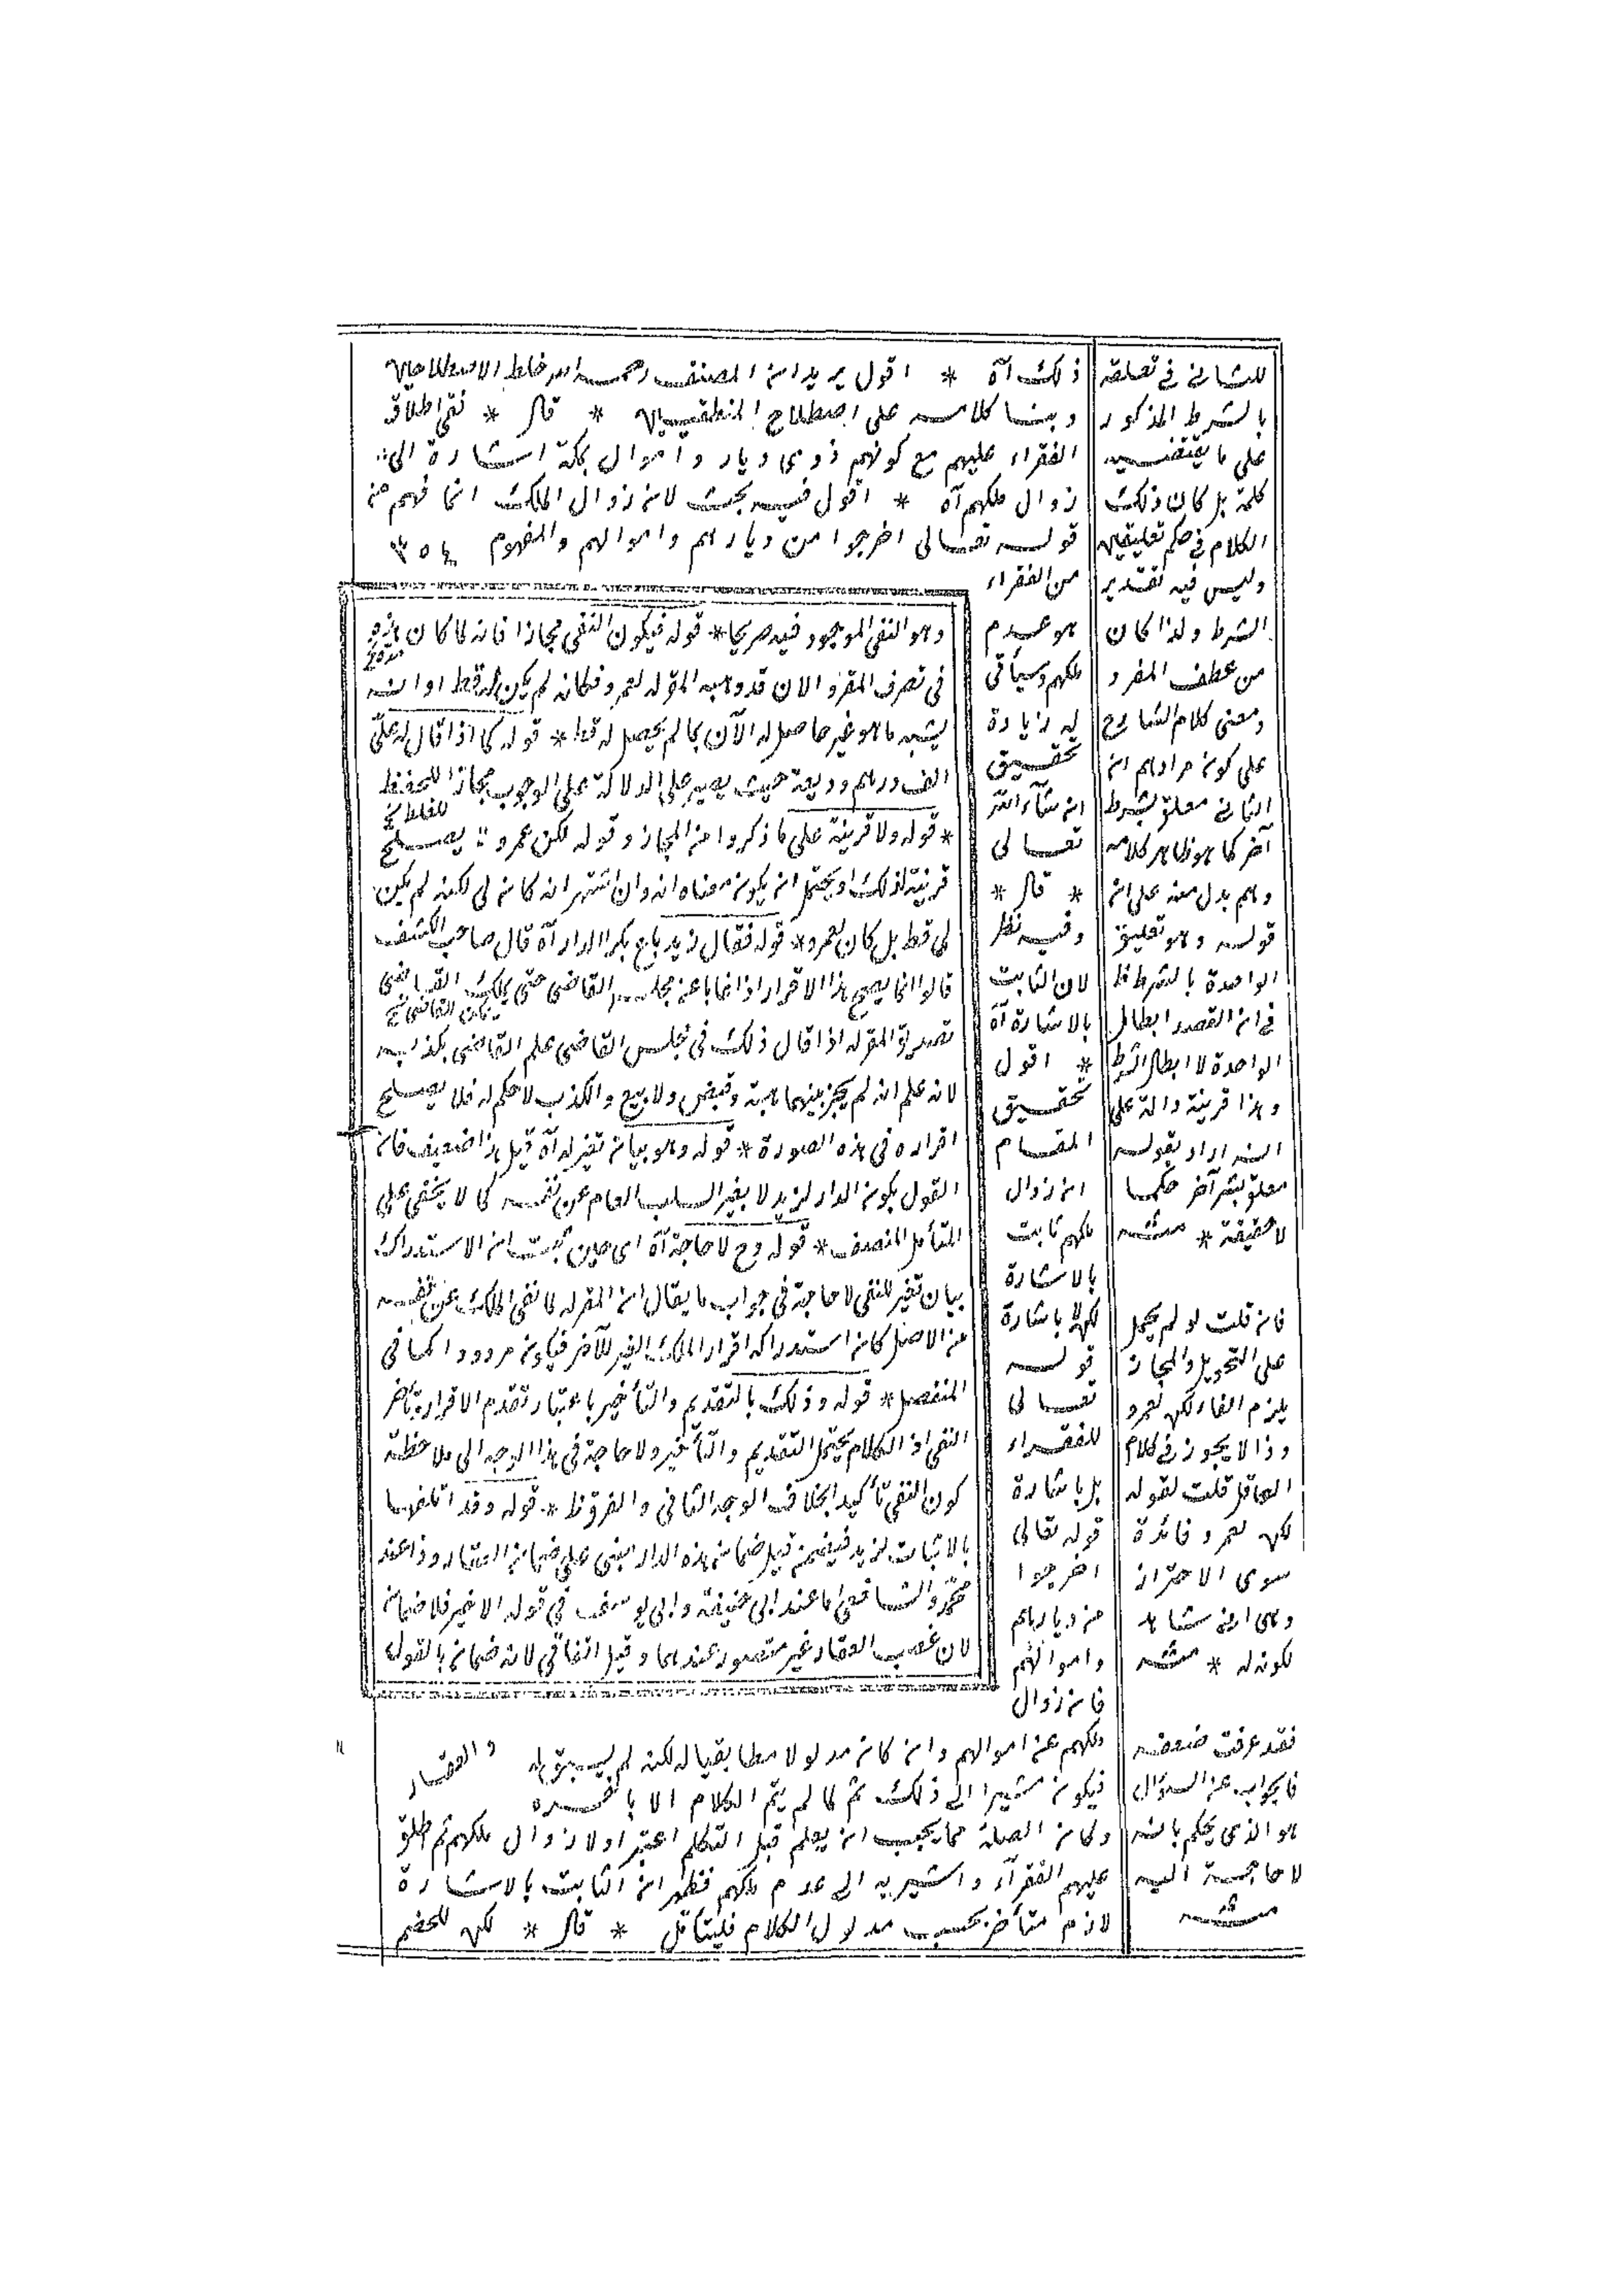 ذلك آه * اقول يريد ان المصنف رحمه الله خلط الاصطلاحين
وبنا كلامه على اصطلاح المنطقيين * قال * نفى اطلاق
الفقراء عليهم مع كونهم ذوى ديار و اموال بمكة اشارة الى
زوال ملكهم آه * اقول فيه بحث لان زوال الملك انما فهم من
قوله تعالى اخرجوا من ديارهم واموالهم والمفهوم
من الفقراء
هو عدم
ملكهم وسيأتى
له زيادة
تحقيق
ان شاء الله
تعالى
* قال *
وفيه نظر
لان الثابت
بالاشارة آه
* اقول
تحقيق
المقام
ان زوال
ملكهم ثابت
بالاشارة
لكن لا باشارة
قوله
تعالى
للفقراء
بل باشارة
قوله تعالى
اخرجوا
من ديارهم
واموالهم
فان زوال
ملكهم عن اموالهم وان كان مدلولا مطابقيا له لكنه لم يسبق له
فيكون مشيرا الى ذلك ثم لما لم يتم الكلام الا باخره
ولان الصلة مما يجب ان يعلم قبل التكلم اعتبر اولا زوال ملكهم ثم اطلق
عليهم الفقراء واشير به الى عدم ملكهم فظهر ان الثابت بالاشارة
لازم متأخر بحسب مدلول الكلام فليتأمل * قال * لكن للخصم
وهو النفى الموجود فيه صريحا * قوله فيكون النفى مجازا فانه لما كان
فى تصرف المقر والان قد وهبه المقر له لعمرو فكانه لم يكن له قط او انه
يشبه ما هو غير حاصل له الآن بما لم يحصل له قط * قوله كما اذا قال له علىّ
الف درهم وديعة حيث يصير على الدلالة على الوجوب مجازا للحفظ
* قوله ولا قرينة على ما ذكروا من المجاز وقوله لكن عمرو يصلح
قرينة لذلك او يحتمل ان يكون معناه انه وان اشتهر انه كان لى لكنه لم يكن
لى قط بل كان لعمرو * قوله فقال زيد باع بكرا الدار آه قال صاحب الكشف
قالوا انما يصح هذا الاقرار اذا غابا عن مجلس القاضى حتى يمكن القاضى
تصديق المقر له اذا قال ذلك فى مجلس القاضى علم القاضى بكذبه
لانه علم انه لم يجز بينهما هبة وقبض ولا بيع والكذب لا حكم له فلا يصلح
اقراره فى هذه الصورة * قوله وهو بيان تغير له آه قيل هذا ضعيف فان
القول بكون الدار لزيد لا يغير السلب العام عن نفسه كما لا يخفى على
المتأمل المنصف * قوله وح لا حاجة آه اى حين ثبت ان الاستدراك
بيان تغير للنفى لا حاجة فى جواب ما يقال ان المقر له لما نفى الملك عن نفسه
من الاصل كان استدراكه اقرار الملك الغير للآخر فيكون مردودا كما فى
المنفصل * قوله وذلك بالتقديم والتأخير باعتبار تقدم الاقرار بتأخر
النفى اذ الكلام يحتمل التقديم والتأخير ولا حاجة فى هذا الوجه الى ملاحظة
كون النفى تأكيدا بخلاف الوجه الثانى والفرق ظ * قوله وقد اتلفها
بالاثبات لزيد فيضمن قيل ضمان هذه الدار مبنى على ضمان العقار وذا عند
محمد والشافعى اما عند ابى حنيفة وابى يوسف فى قوله الاخير فلا ضمان
لان غصب العقار غير متصور عندهما وقيل اتفاقى لانه ضمان بالقول
والعقار
للثانى فى تعلقه
بالشرط المذكور
على ما يقتضيه
كلمة بل كان ذلك
الكلام فى حكم تعليقين
وليس فيه تقدير
الشرط ولذا كان
من عطف المفرد
ومعنى كلام الشارح
على كون مرادهم ان
الثانى معلق بشرط
آخر كما هو ظاهر كلامه
قوله وهو تعليق
الواحدة بالشرط
فى ان القصد ابطال
الواحدة لا ابطال الشرط
وهذا قرينة دالة على
انه اراد بقوله
معلق بشرط آخر حكما
لا حقيقة * منه
فان قلت لو لم يحمل
على التحويل والمجاز
يلزم الغاء لكن لعمرو
وذا لا يجوز فى كلام
العاقل قلت لقوله
لكن لعمرو فائدة
سوى الاحتراز
وهى انه شاهد
لكونه له * منه
فقد عرفت ضعفه
فالجواب عن السؤال
هو الذى يحكم بانه
لا حاجة اليه
منه